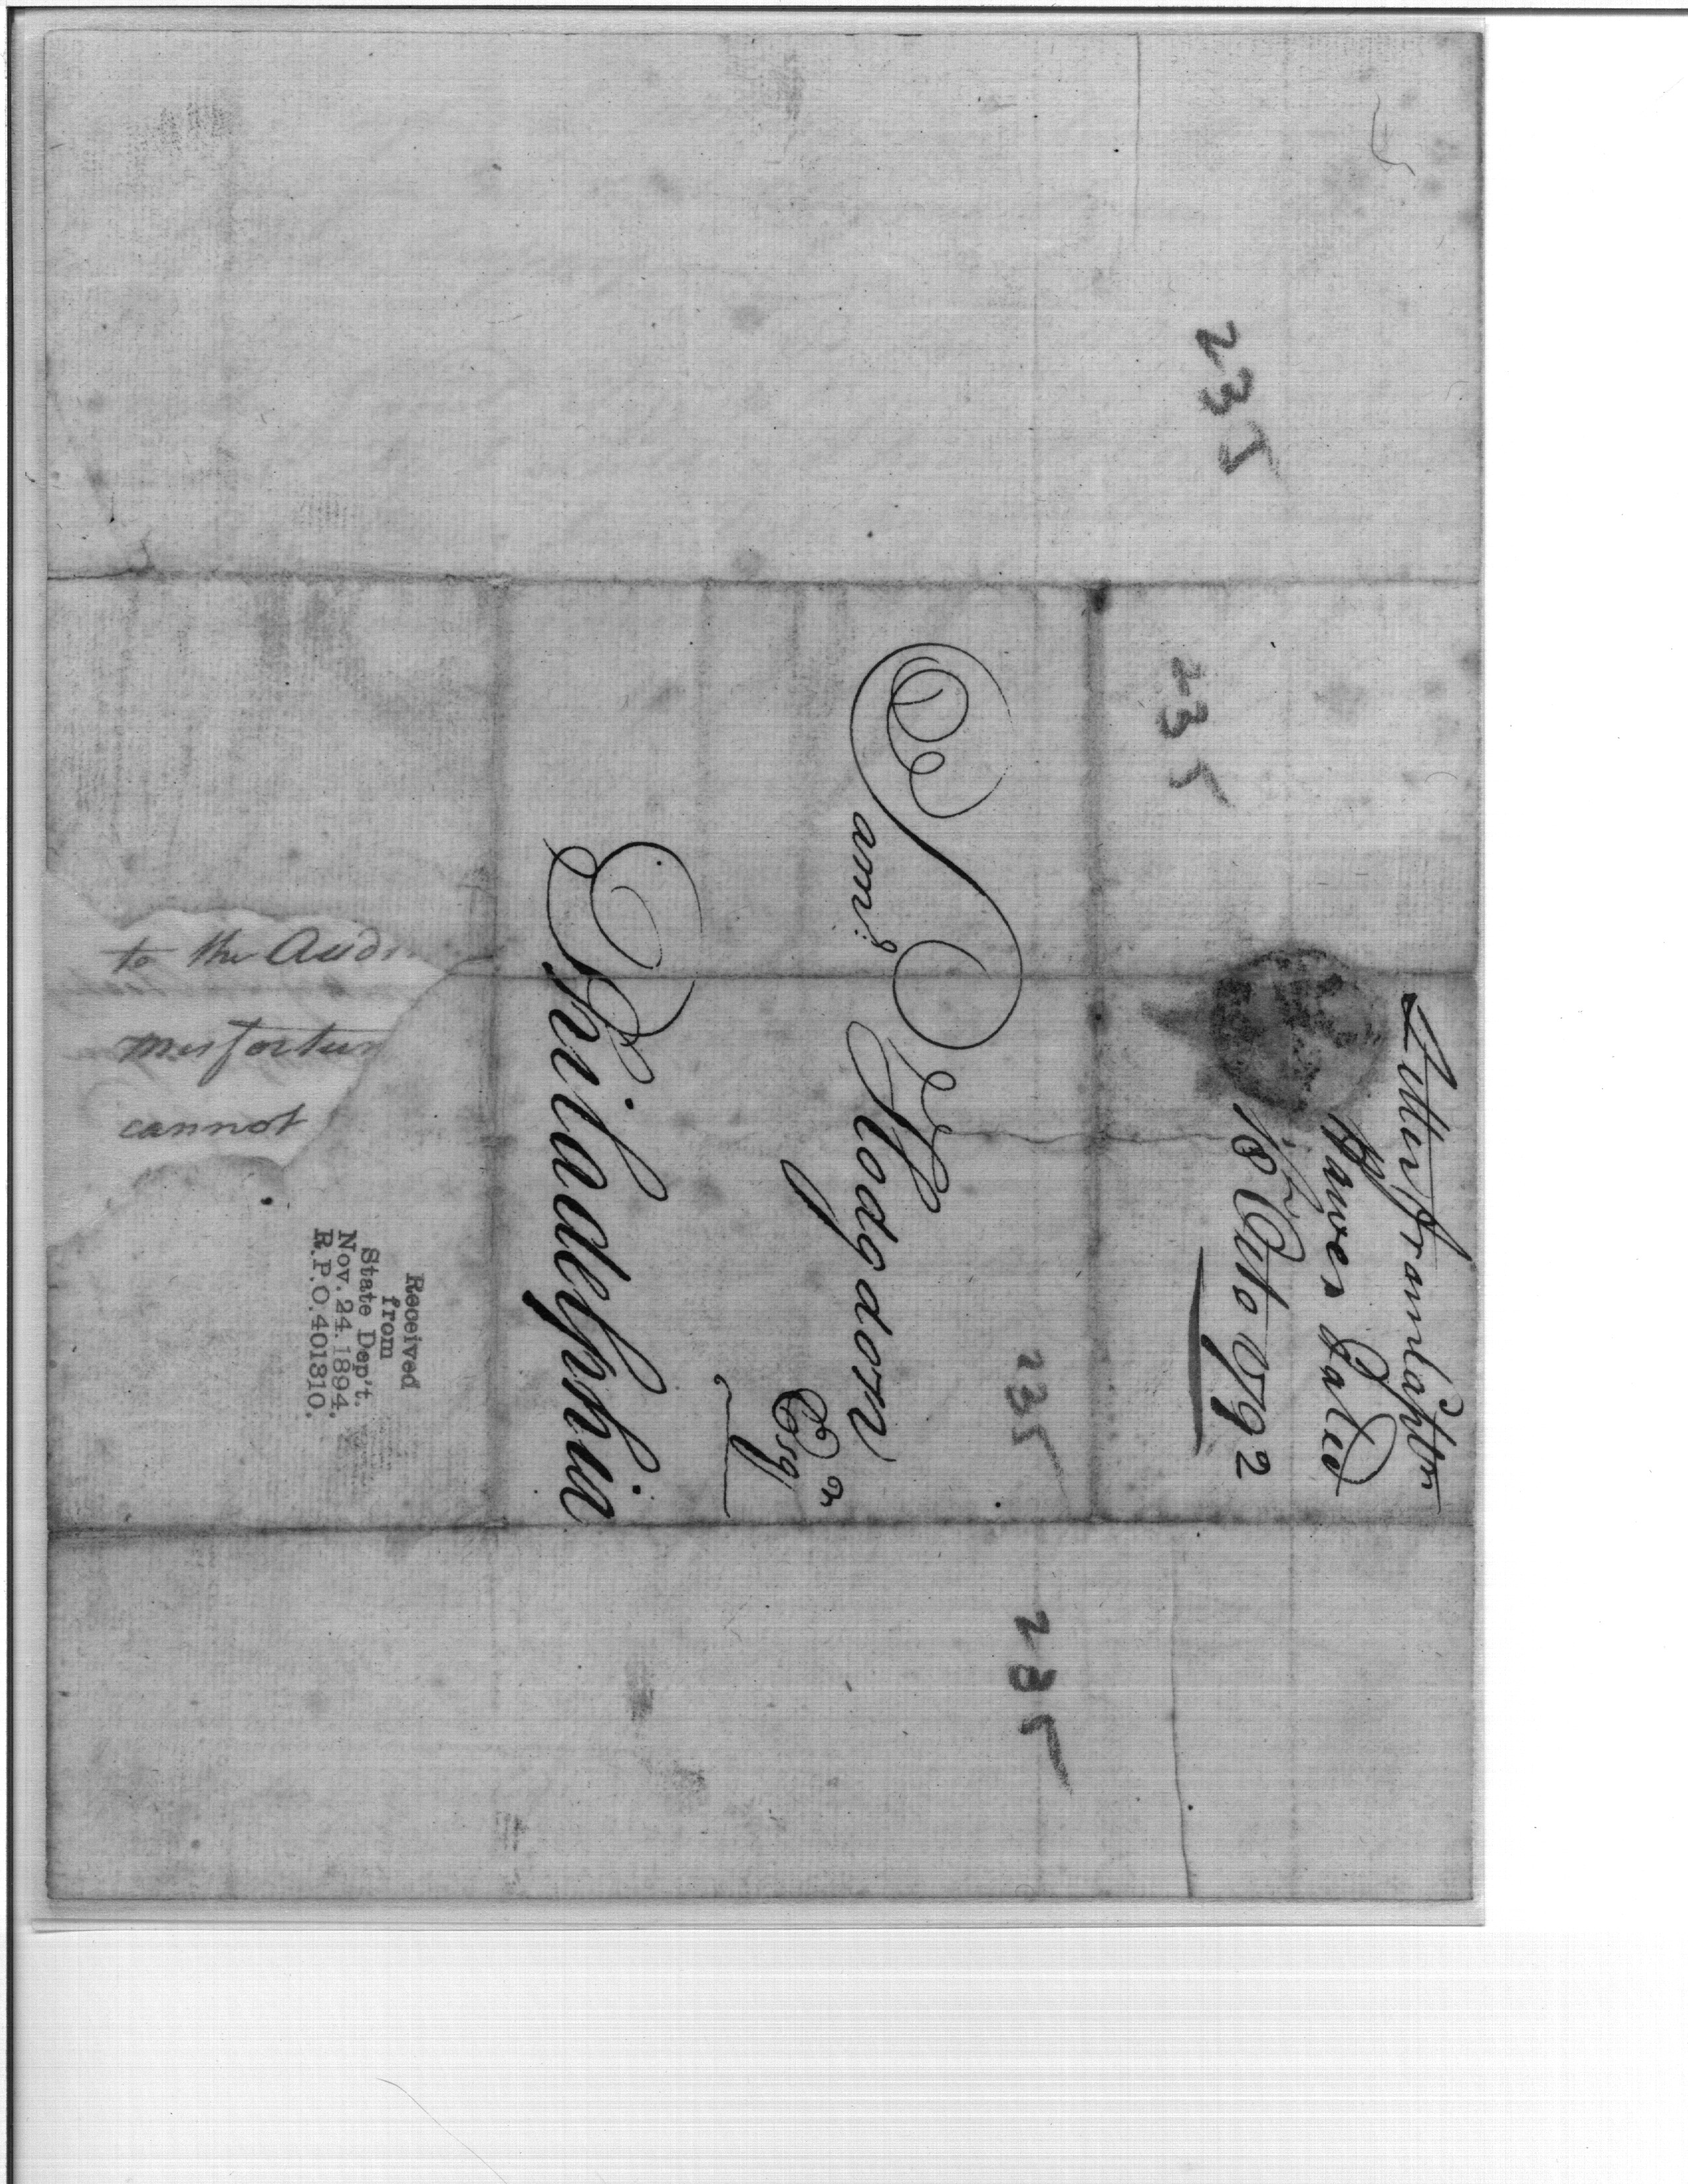 235
235
Letter from Capt
18th Octo 1792
Saml Hodgdon
Esqr
235
Philadelphia
235
to the Aud
misfortun
cannot
Received
from
State Dep't.
Nov. 24. 1894.
R.P.O. 401310.